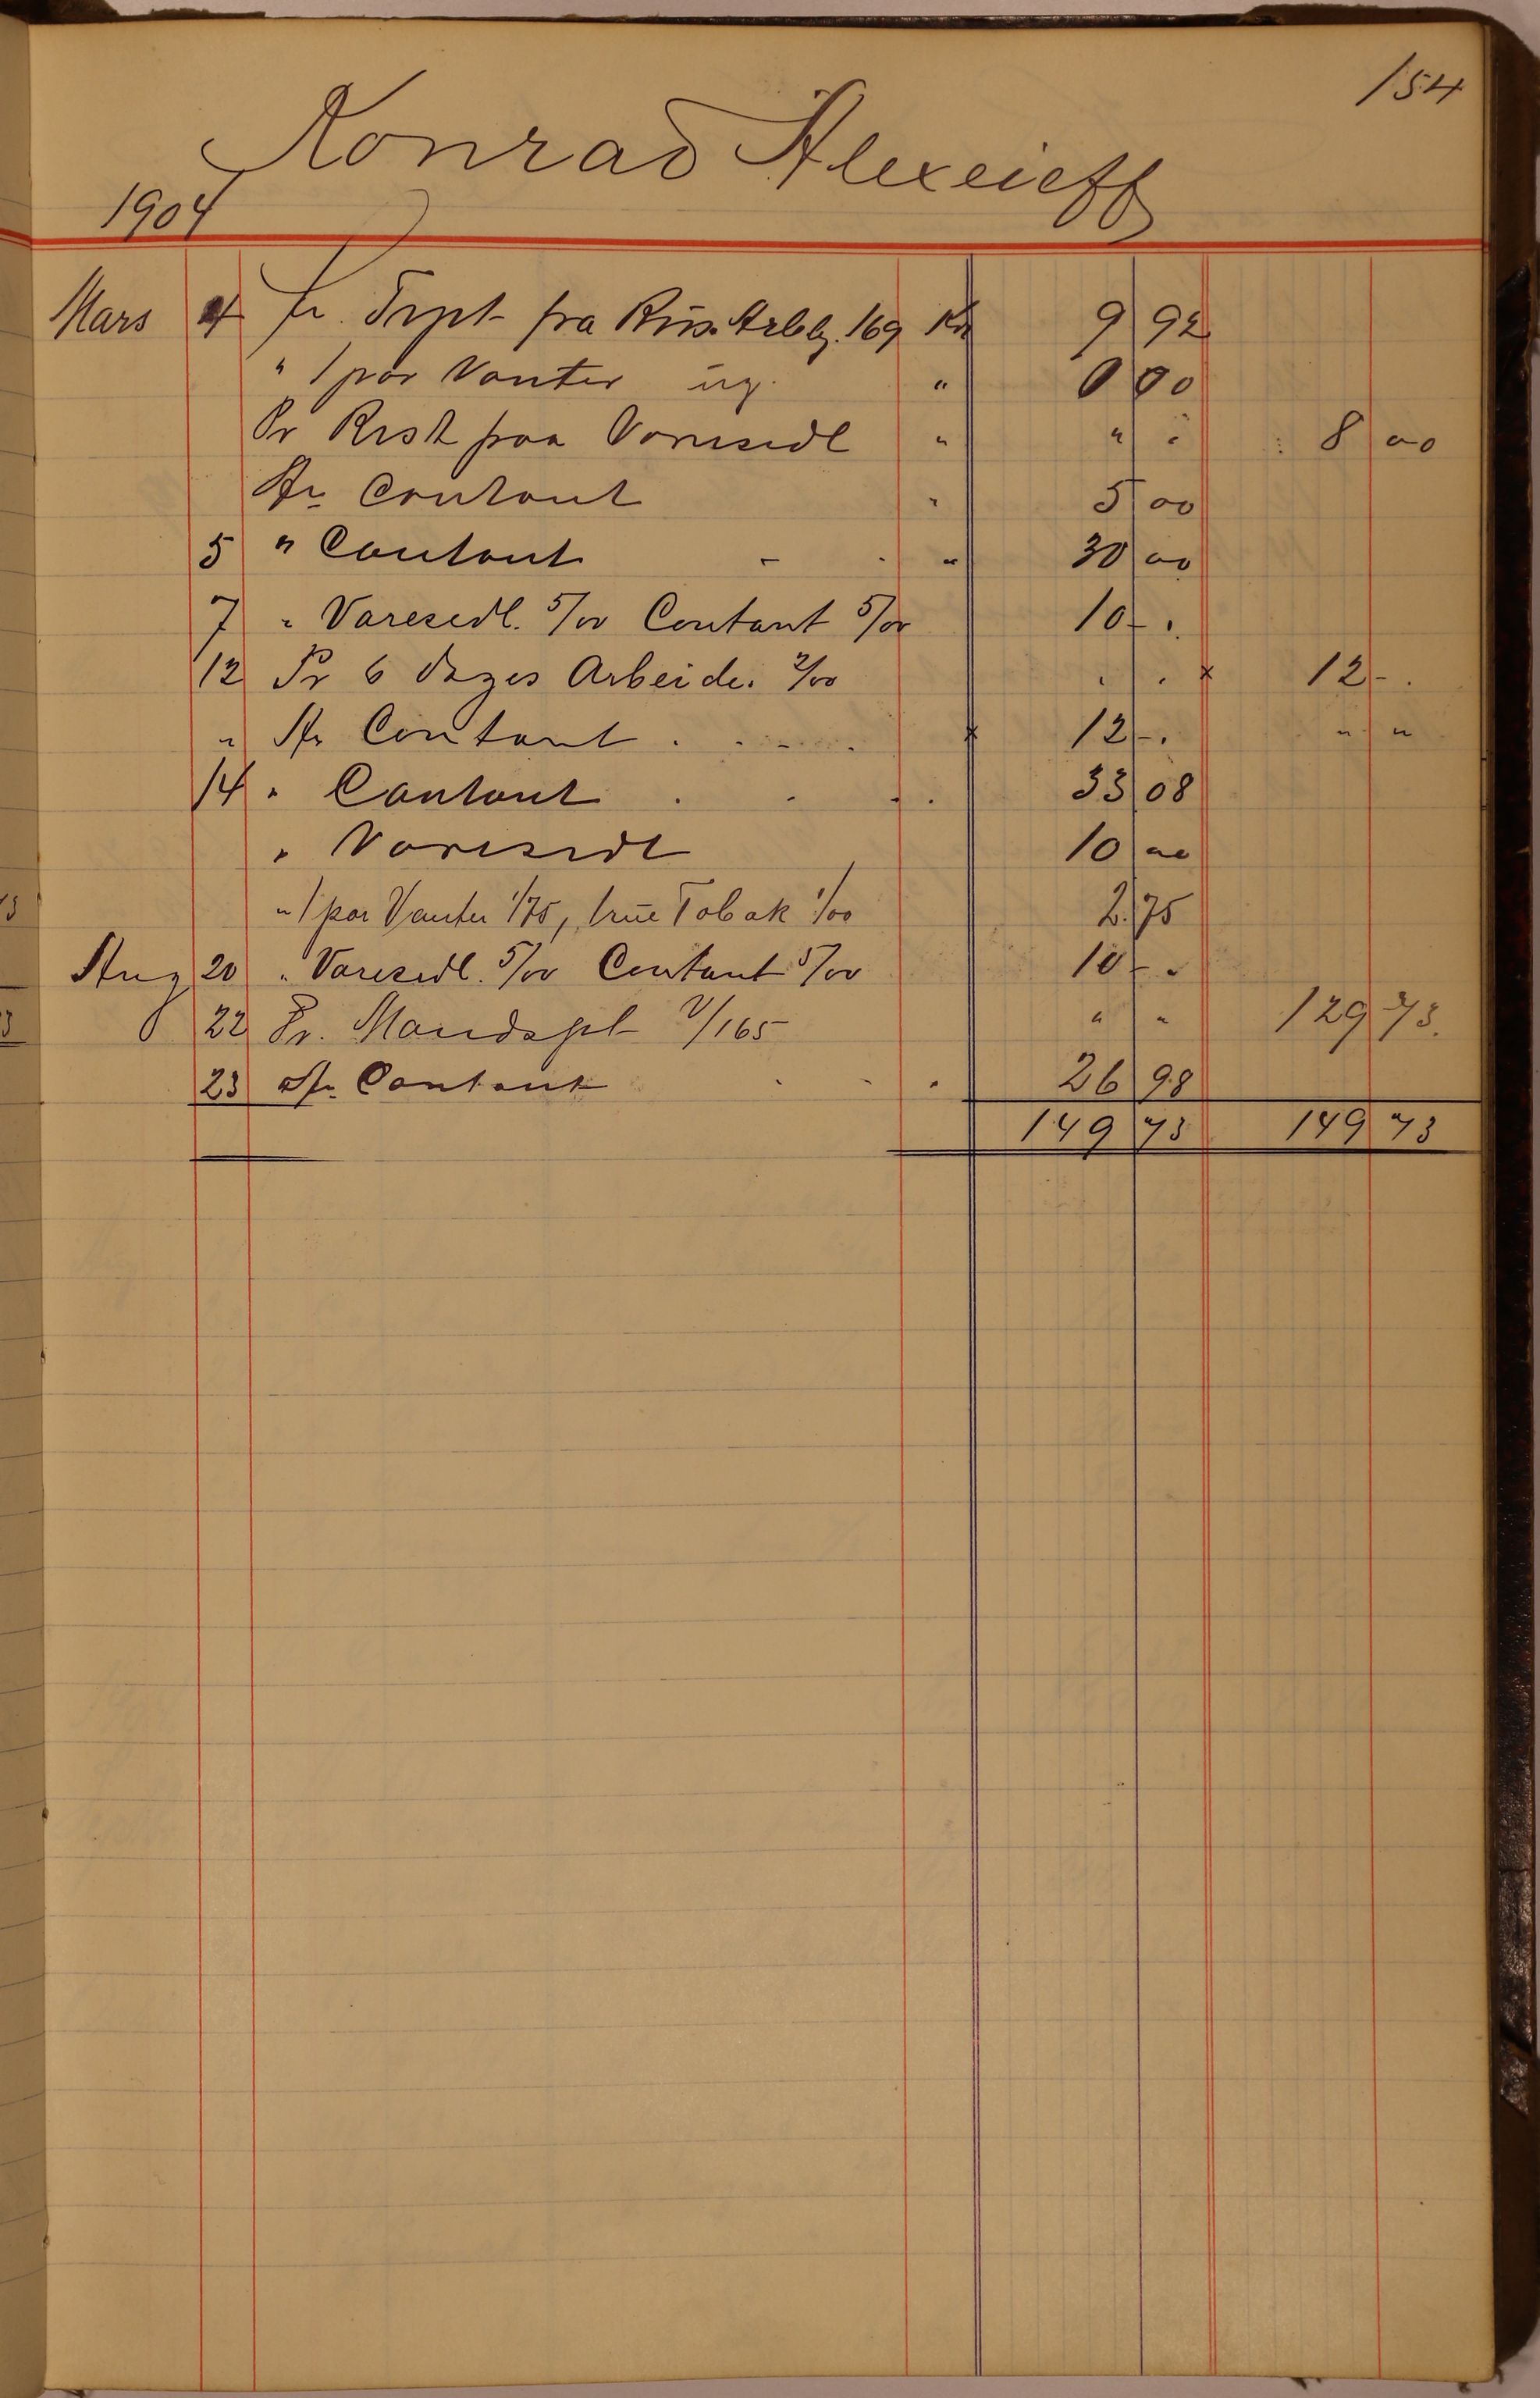 154
Konrad Alexeieff
1904
Mars 4 An Trpt fra Rus. Arbbg. 169 Kr 9 92
" 1 par Vanter ug. " 0 00
Pr Rest paa Varesedl " " " 8 00
An Contant " 5 00
5 " Contant " 30 00
7 " Varesedl. 5/00 Contant 5/00 10 - .
12 Pr 6 Dages Arbeide. 2/00 . . x 12 - .
" An Contant x 12 - . " "
14 " Contant 33 08
" Varesedl 10 00
" 1 par Vanter 1/75, 1 rue Tobak 1/00 2.75
Aug 20 " Varesedl. 5/00 Contant 5/00 10 - .
22 Pr. Mandspl V/165 " " 129 73.
23 An Contant 26 98
149 73 149 73